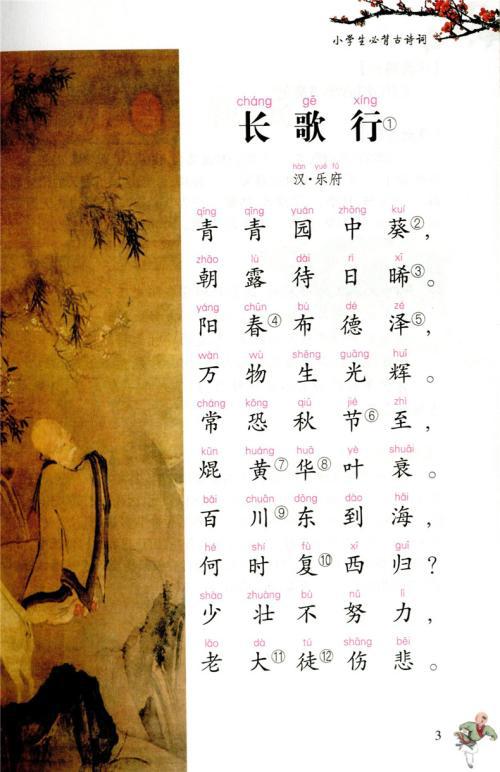 小学生必背古诗词
cháng gē xíng
长歌行①
hàn yuè fǔ
汉·乐府
qīng qīng yuán zhōng kuí
青青园中葵②，
zhāo lù dài rì xī
朝露待日晞③。
yáng chūn bù dé zé
阳春④布德泽⑤，
wàn wù shēng guāng huī
万物生光辉。
cháng kǒng qiū jié zhì
常恐秋节⑥至，
kūn huáng huā yè shuāi
焜黄⑦华⑧叶衰。
bǎi chuān dōng dào hǎi
百川⑨东到海，
hé shí fù xī guī
何时复⑩西归？
shào zhuàng bù nǔ lì
少壮不努力，
lǎo dà tú shāng bēi
老大⑪徒⑫伤悲。
3